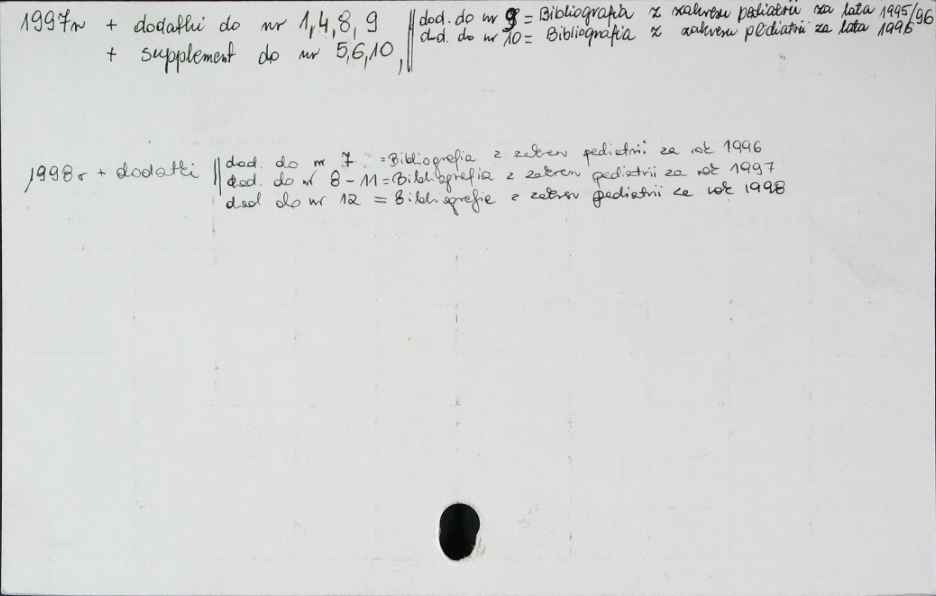 1997r + dodatki do nr 1,4,8,9 || dod. do nr 9 = Bibliografia z zakresu pediatrii za lata 1995/96
+ supplement do nr 5,6,10, || dod. do nr 10 = Bibliografia z zakresu pediatrii za lata 1996
1998r + dodatki || dod. do nr 7 = Bibliografia z zakresu pediatrii za rok 1996
dod. do nr 8-11 = Bibliografia z zakresu pediatrii za rok 1997
dod do nr 12 = Bibliografia z zakresu pediatrii za rok 1998